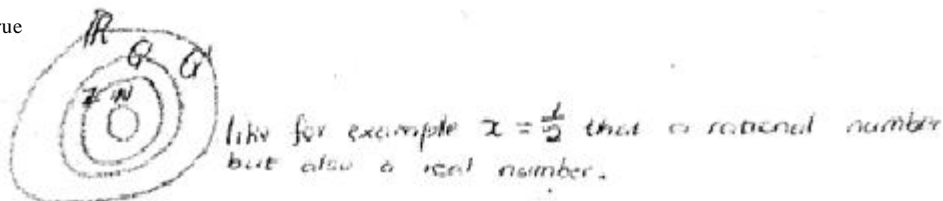 rue
ℝ
Q Q'
Z N
like for example x = 1/2 that a rational number
but also a real number.